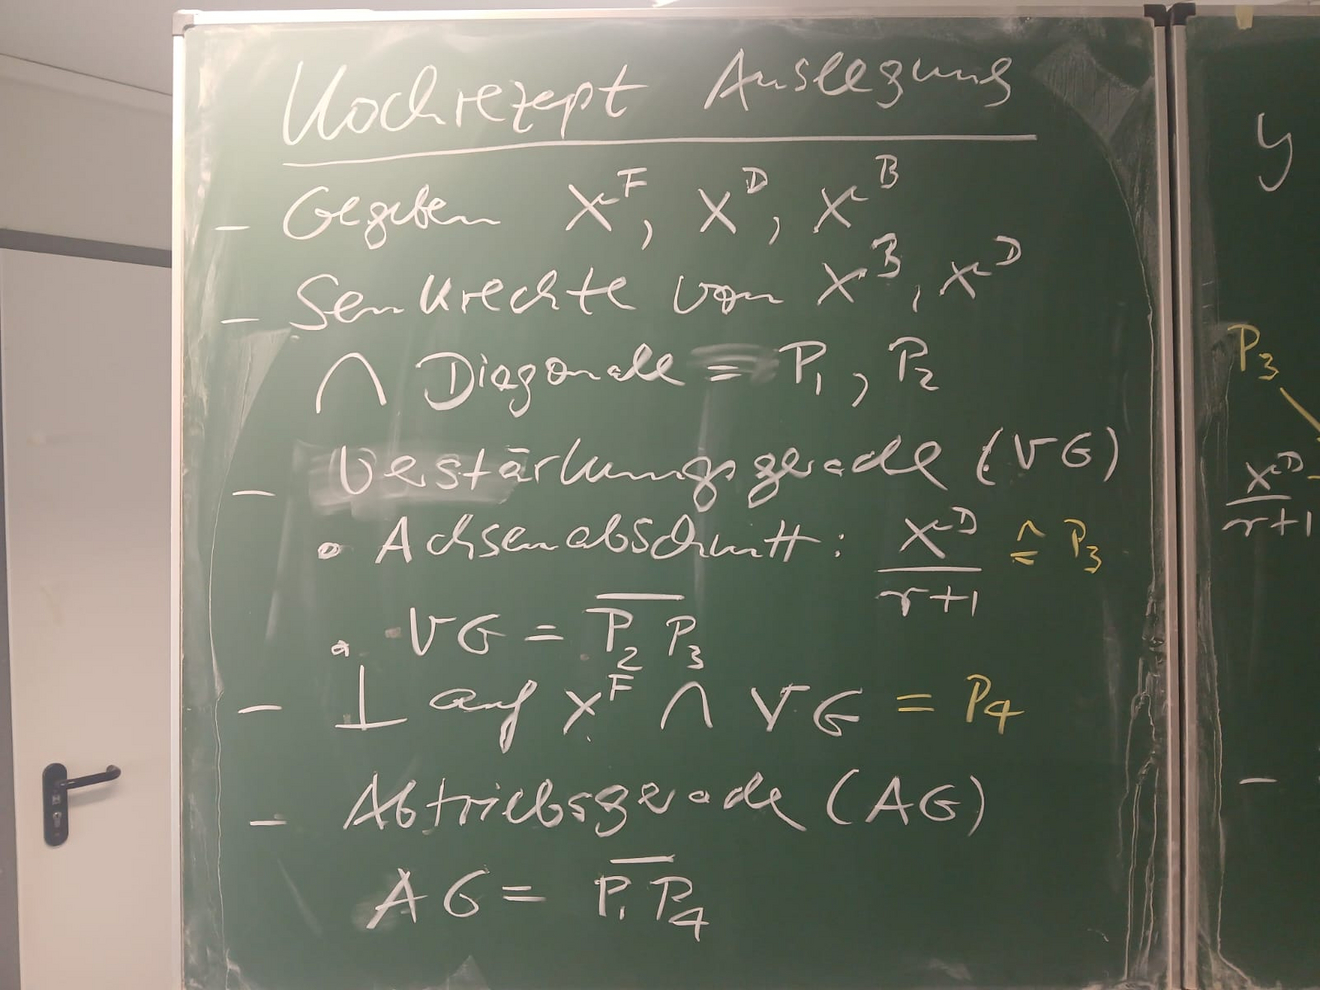 Kochrezept Auslegung
- Gegeben x^F, x^D, x^B
- Senkrechte von x^B, x^D
∩ Diagonale = P₁, P₂
- Verstärkungsgerade (VG)
• Achsenabschnitt: x^D/(r+1) ≙ P₃
• VG = \overline{P₂ P₃}
- ⊥ auf x^F ∩ VG = P₄
- Abtriebsgerade (AG)
AG = \overline{P₁ P₄}
y
P₃
x^D/(r+1)
-